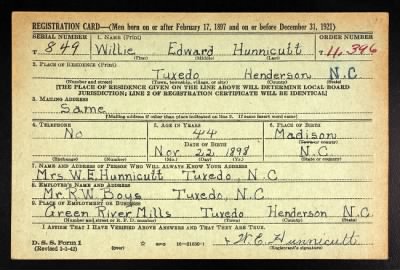 REGISTRATION CARD—(Men born on or after February 17, 1897 and on or before December 31, 1921)
SERIAL NUMBER 1. NAME (Print) ORDER NUMBER
T 849 Willie Edward Hunnicutt T 11,396
(First) (Middle) (Last)
2. PLACE OF RESIDENCE (Print)
Tuxedo Henderson N.C.
(Number and street) (Town, township, village, or city) (County) (State)
[THE PLACE OF RESIDENCE GIVEN ON THE LINE ABOVE WILL DETERMINE LOCAL BOARD
JURISDICTION; LINE 2 OF REGISTRATION CERTIFICATE WILL BE IDENTICAL]
3. MAILING ADDRESS
Same
[Mailing address if other than place indicated on line 2. If same insert word same]
4. TELEPHONE 5. AGE IN YEARS 6. PLACE OF BIRTH
No 44 Madison
DATE OF BIRTH (Town or county)
Nov 22 1898 N.C.
(Exchange) (Number) (Mo.) (Day) (Yr.) (State or country)
7. NAME AND ADDRESS OF PERSON WHO WILL ALWAYS KNOW YOUR ADDRESS
Mrs W.E. Hunnicutt Tuxedo, N.C
8. EMPLOYER'S NAME AND ADDRESS
Mr. R.W. Boys Tuxedo, N.C
9. PLACE OF EMPLOYMENT OR BUSINESS
Green River Mills Tuxedo Henderson N.C
(Number and street or R. F. D. number) (Town) (County) (State)
I AFFIRM THAT I HAVE VERIFIED ABOVE ANSWERS AND THAT THEY ARE TRUE.
D. S. S. Form 1 W.E. Hunnicutt
(Revised 4-1-42) (over) 16—21630-1 (Registrant's signature)